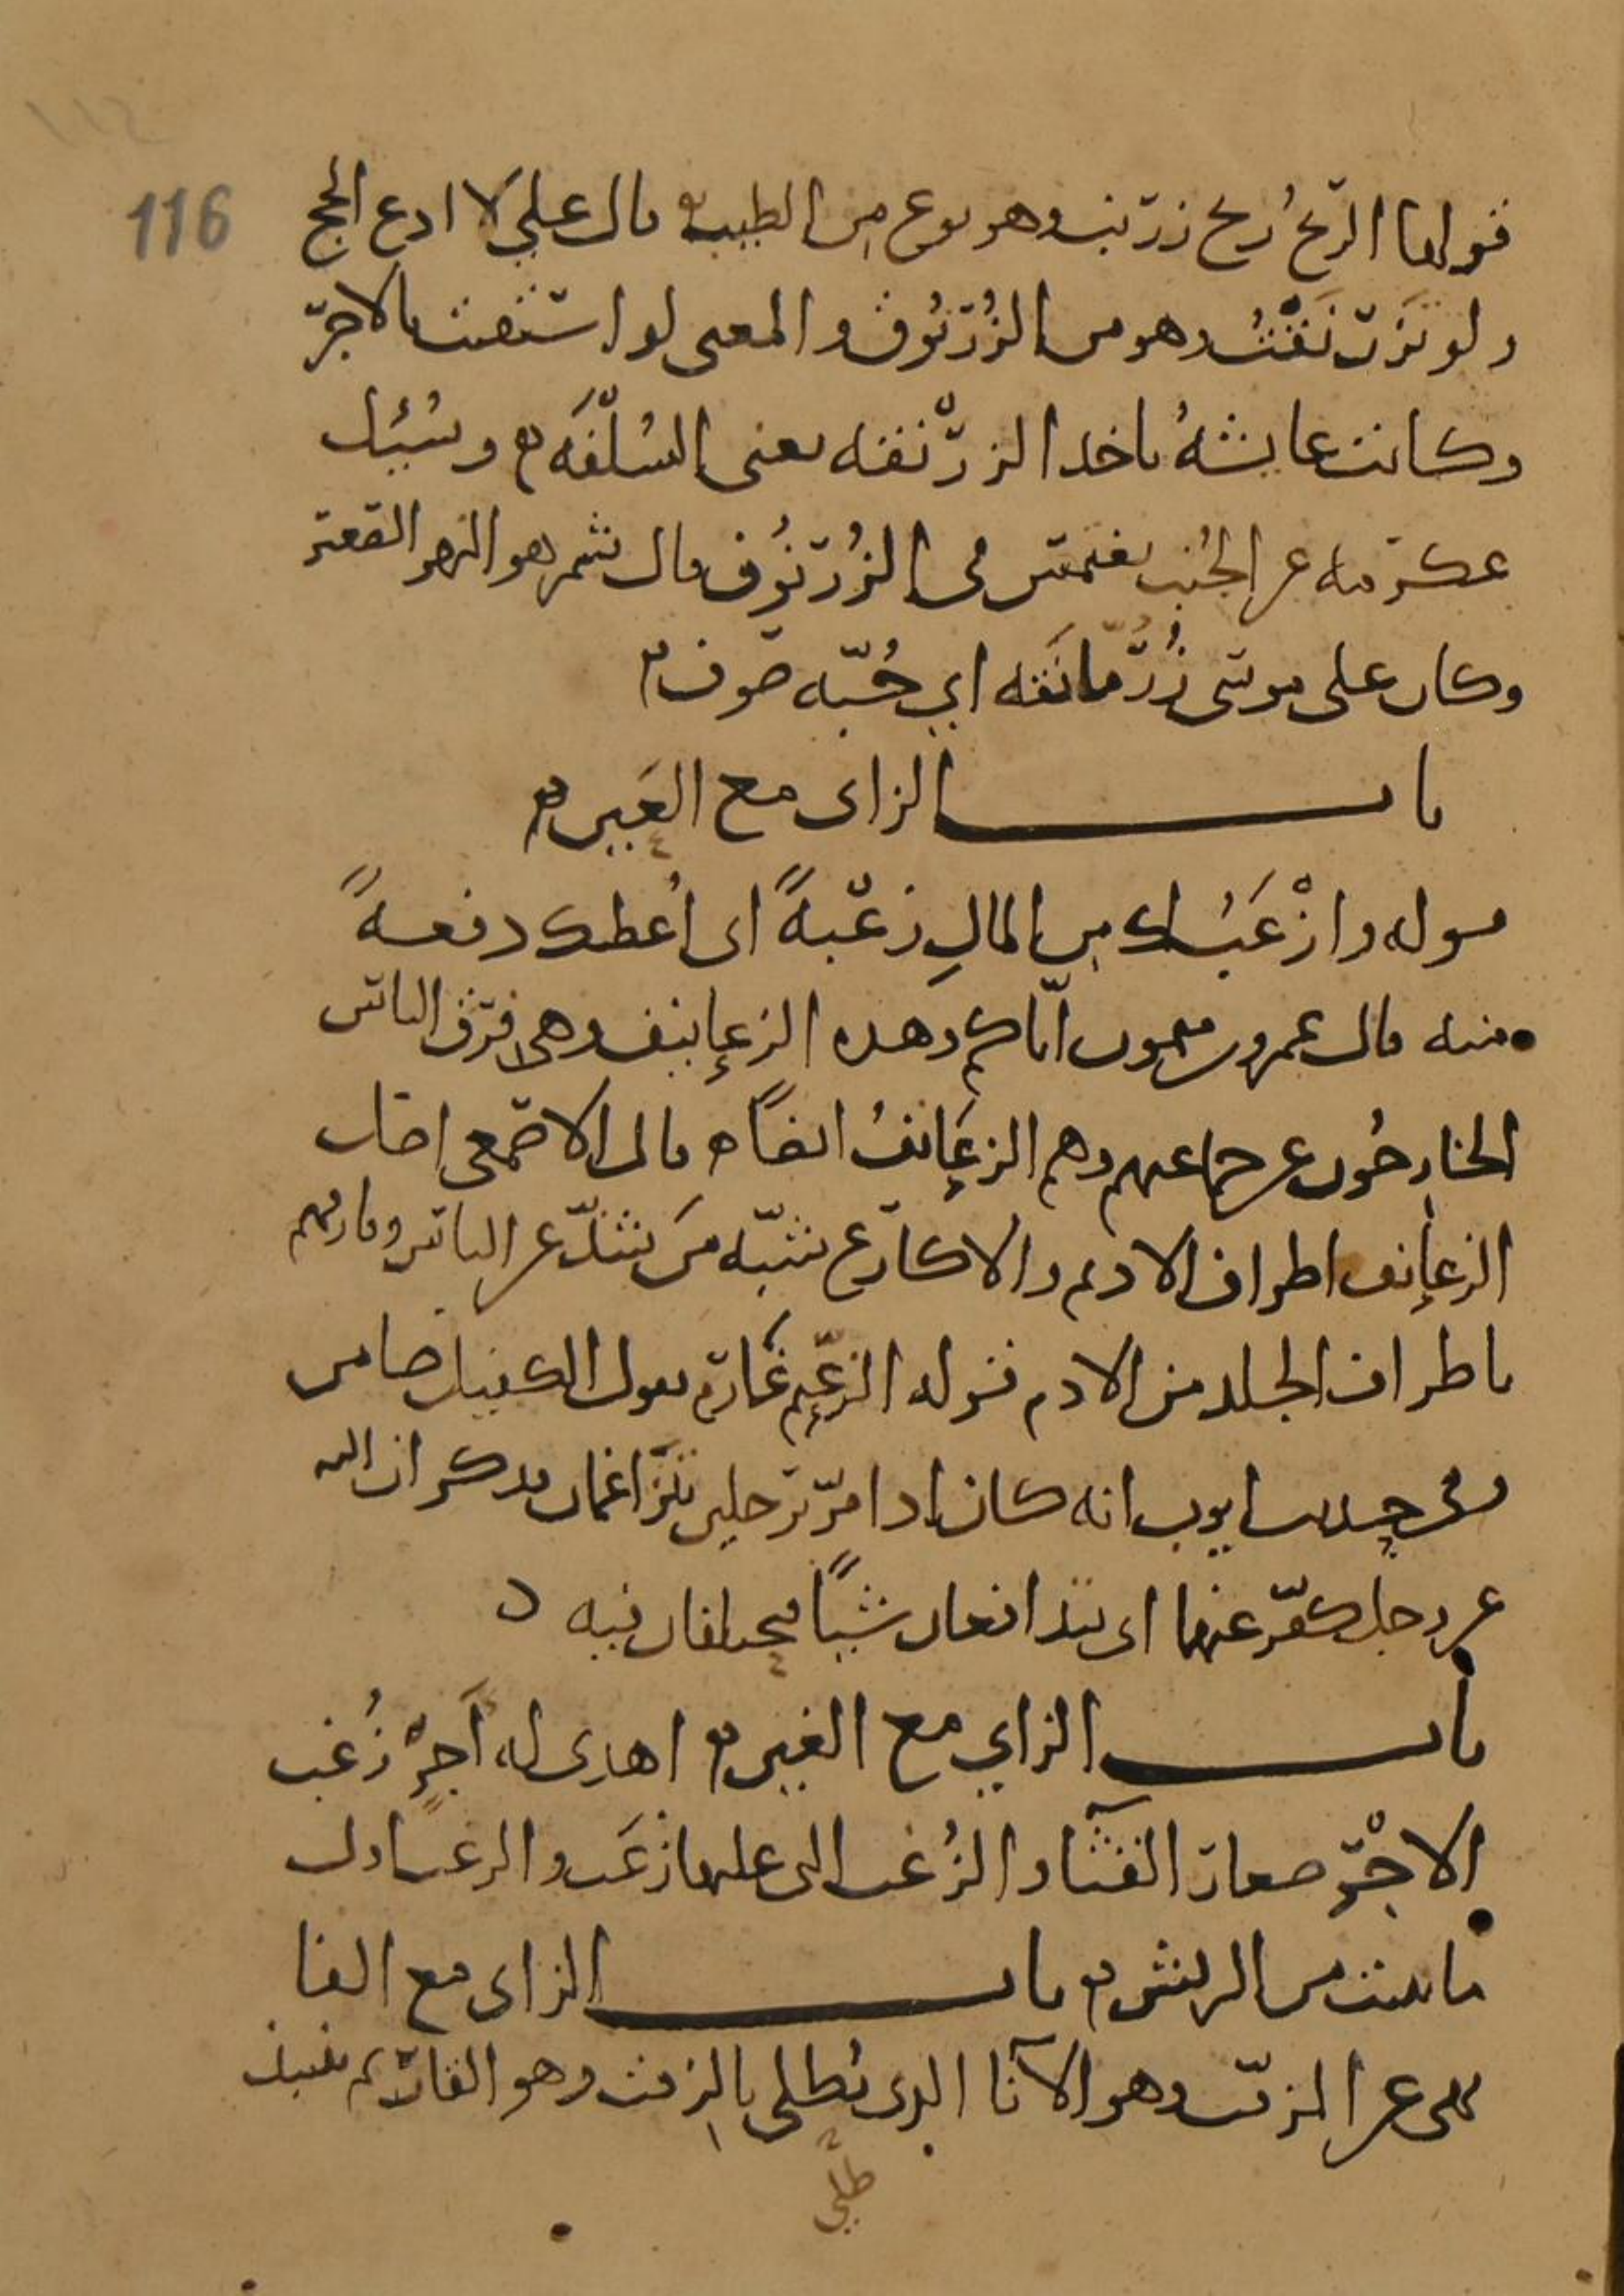 ١١٤
116
قولها الريح ريح زرنب وهو نوع من الطيب قال علي لا ادع الحج
ولو تزرنقت وهو من الزرنوق والمعنى لو استقيت بالاجر
وكانت عايشة تاخذ الزرنقة يعني السلفة وسئل
عكرمة عن الجنب يغتمس في الزرنوق قال شمر هو النهر
وكان على موسى زرمانقة اي جبة صوف
باب الزاي مع العين
قوله وازعب لك من المال زعبة اي اعطيك دفعة
منه قال عمرو بن ميمون اياكم وهذه الزعانيف وهي فرق الناس
الخارجون عن جماعتهم وهم الزعانف ايضا قال الاصمعي اصل
الزعانف اطراف الاديم والاكارع شبه من شذ عن الناس وفارقهم
باطراف الجلد من الاديم قوله الزعيم غارم يقول الكفيل ضامن
وفي حديث ايوب انه كان اذا مر برجلين يتزاعمان فذكر ان الله
عز وجل كفر عنهما اي يتداعيان شيا فيختلفان فيه
باب الزاي مع الغين اهدي له اجر زغب
الاجر صغار القثا والزغب التي عليها زغب والزغب اول
ما ينبت من الريش باب الزاي مع الفا
نهى عن المزفت وهو الانا الذي يطلى بالزفت وهو القار
طلي